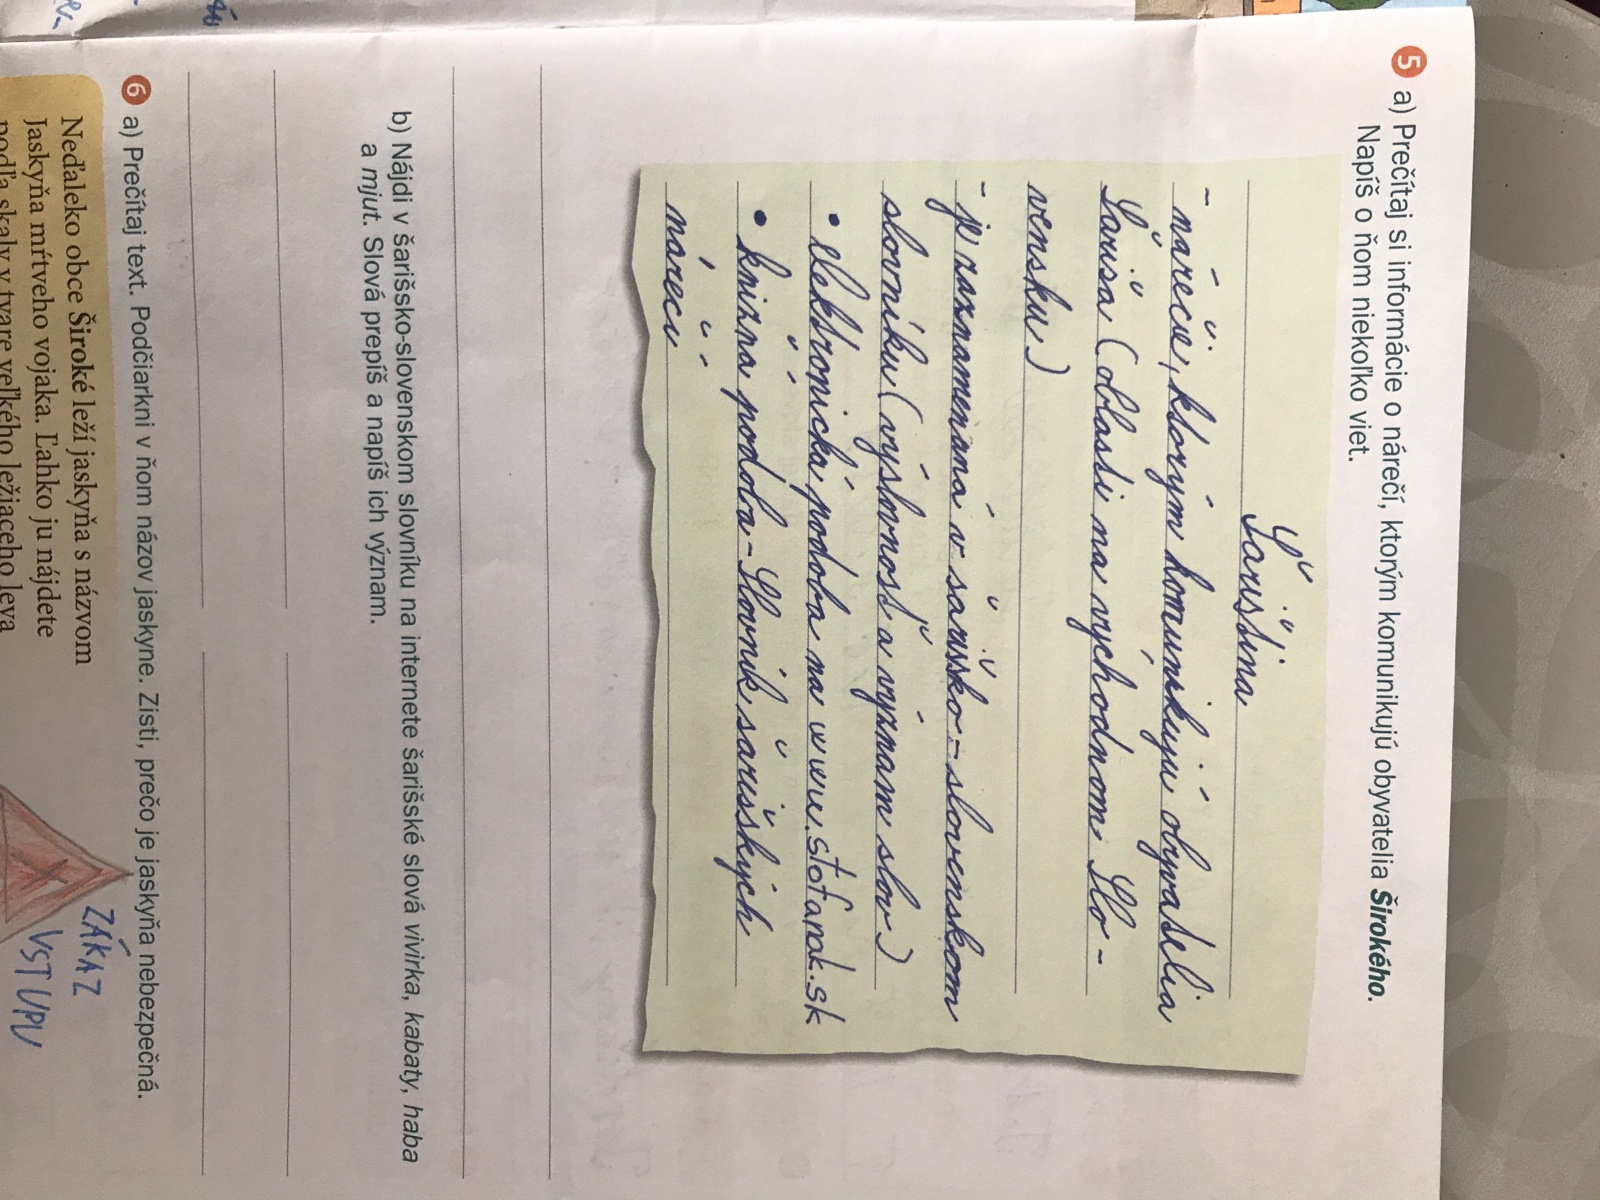 5 a) Prečítaj si informácie o nárečí, ktorým komunikujú obyvatelia Širokého.
Napíš o ňom niekoľko viet.
Šariština
- nárečie, ktorým komunikujú obyvatelia
Šariša (oblasti na východnom Slo-
vensku)
- je zaznamenaná v šarišsko-slovenskom
slovníku (výslovnosť a význam slov)
• elektronická podoba na www.stofanak.sk
• knižná podoba - Slovník šarišských
nárečí
b) Nájdi v šarišsko-slovenskom slovníku na internete šarišské slová vivirka, kabaty, haba
a mjut. Slová prepíš a napíš ich význam.
6 a) Prečítaj text. Podčiarkni v ňom názov jaskyne. Zisti, prečo je jaskyňa nebezpečná.
Neďaleko obce Široké leží jaskyňa s názvom
Jaskyňa mŕtveho vojaka. Ľahko ju nájdete
podľa skaly v tvare veľkého ležiaceho leva
ZÁKAZ
VSTUPU